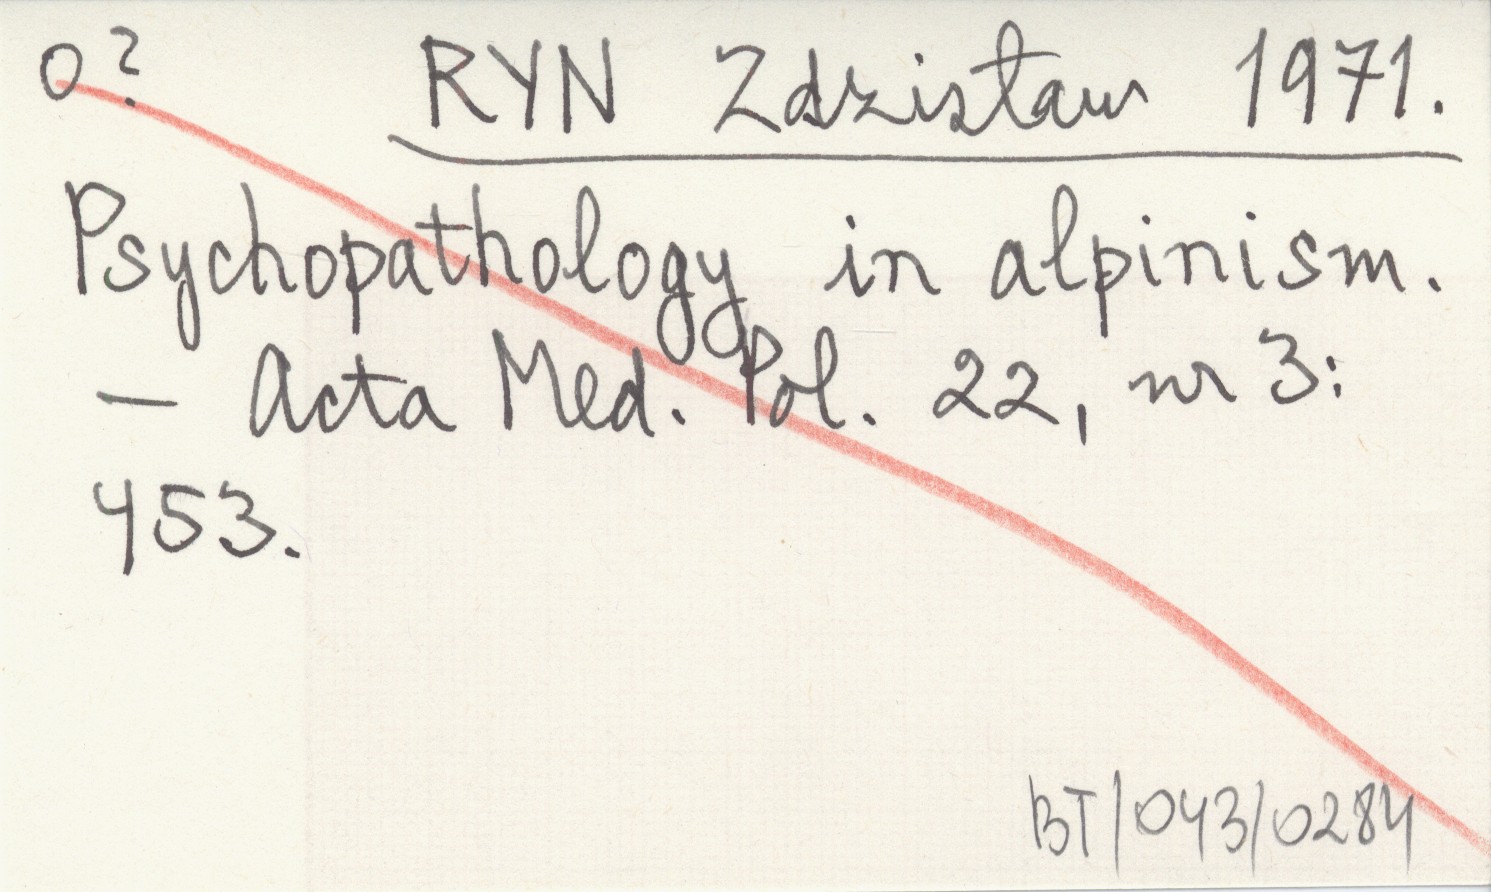 O? RYN Zdzisław 1971.
Psychopathology in alpinism.
— Acta Med. Pol. 22, nr 3:
453.
BT/043/0284